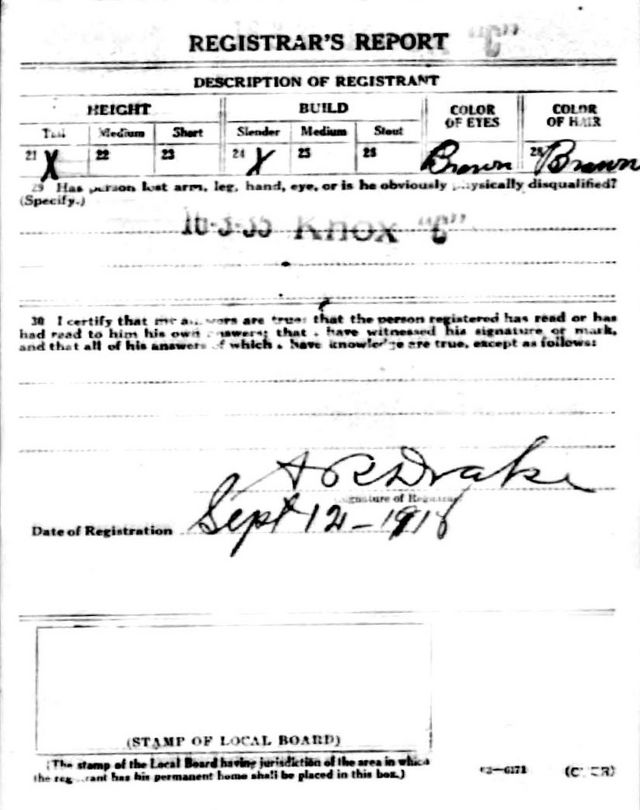 REGISTRAR'S REPORT "C"
DESCRIPTION OF REGISTRANT
HEIGHT BUILD COLOR OF EYES COLOR OF HAIR
Tall Medium Short Slender Medium Stout
21 X 22 23 24 X 25 26 Brown 28 Brown
29 Has person lost arm, leg, hand, eye, or is he obviously physically disqualified?
(Specify.)
10-3-35 Knox "C"
30 I certify that my answers are true; that the person registered has read or has
had read to him his own answers; that I have witnessed his signature or mark,
and that all of his answers of which I have knowledge are true, except as follows:
A R Drake
Signature of Registrar
Date of Registration Sept 12-1918
(STAMP OF LOCAL BOARD)
(The stamp of the Local Board having jurisdiction of the area in which
the registrant has his permanent home shall be placed in this box.)
03—6171 (OVER)